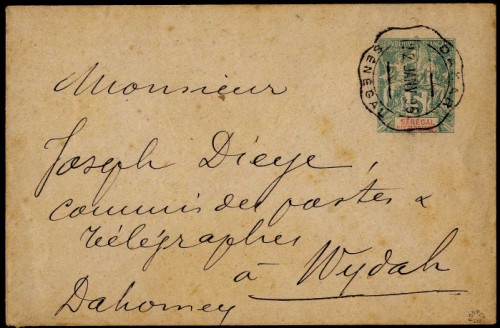 DAKAR
12 JANV 95
SÉNÉGAL
SÉNÉGAL
Monsieur
Joseph Dieye,
commis des postes &
télégraphes
à Wydah
Dahomey